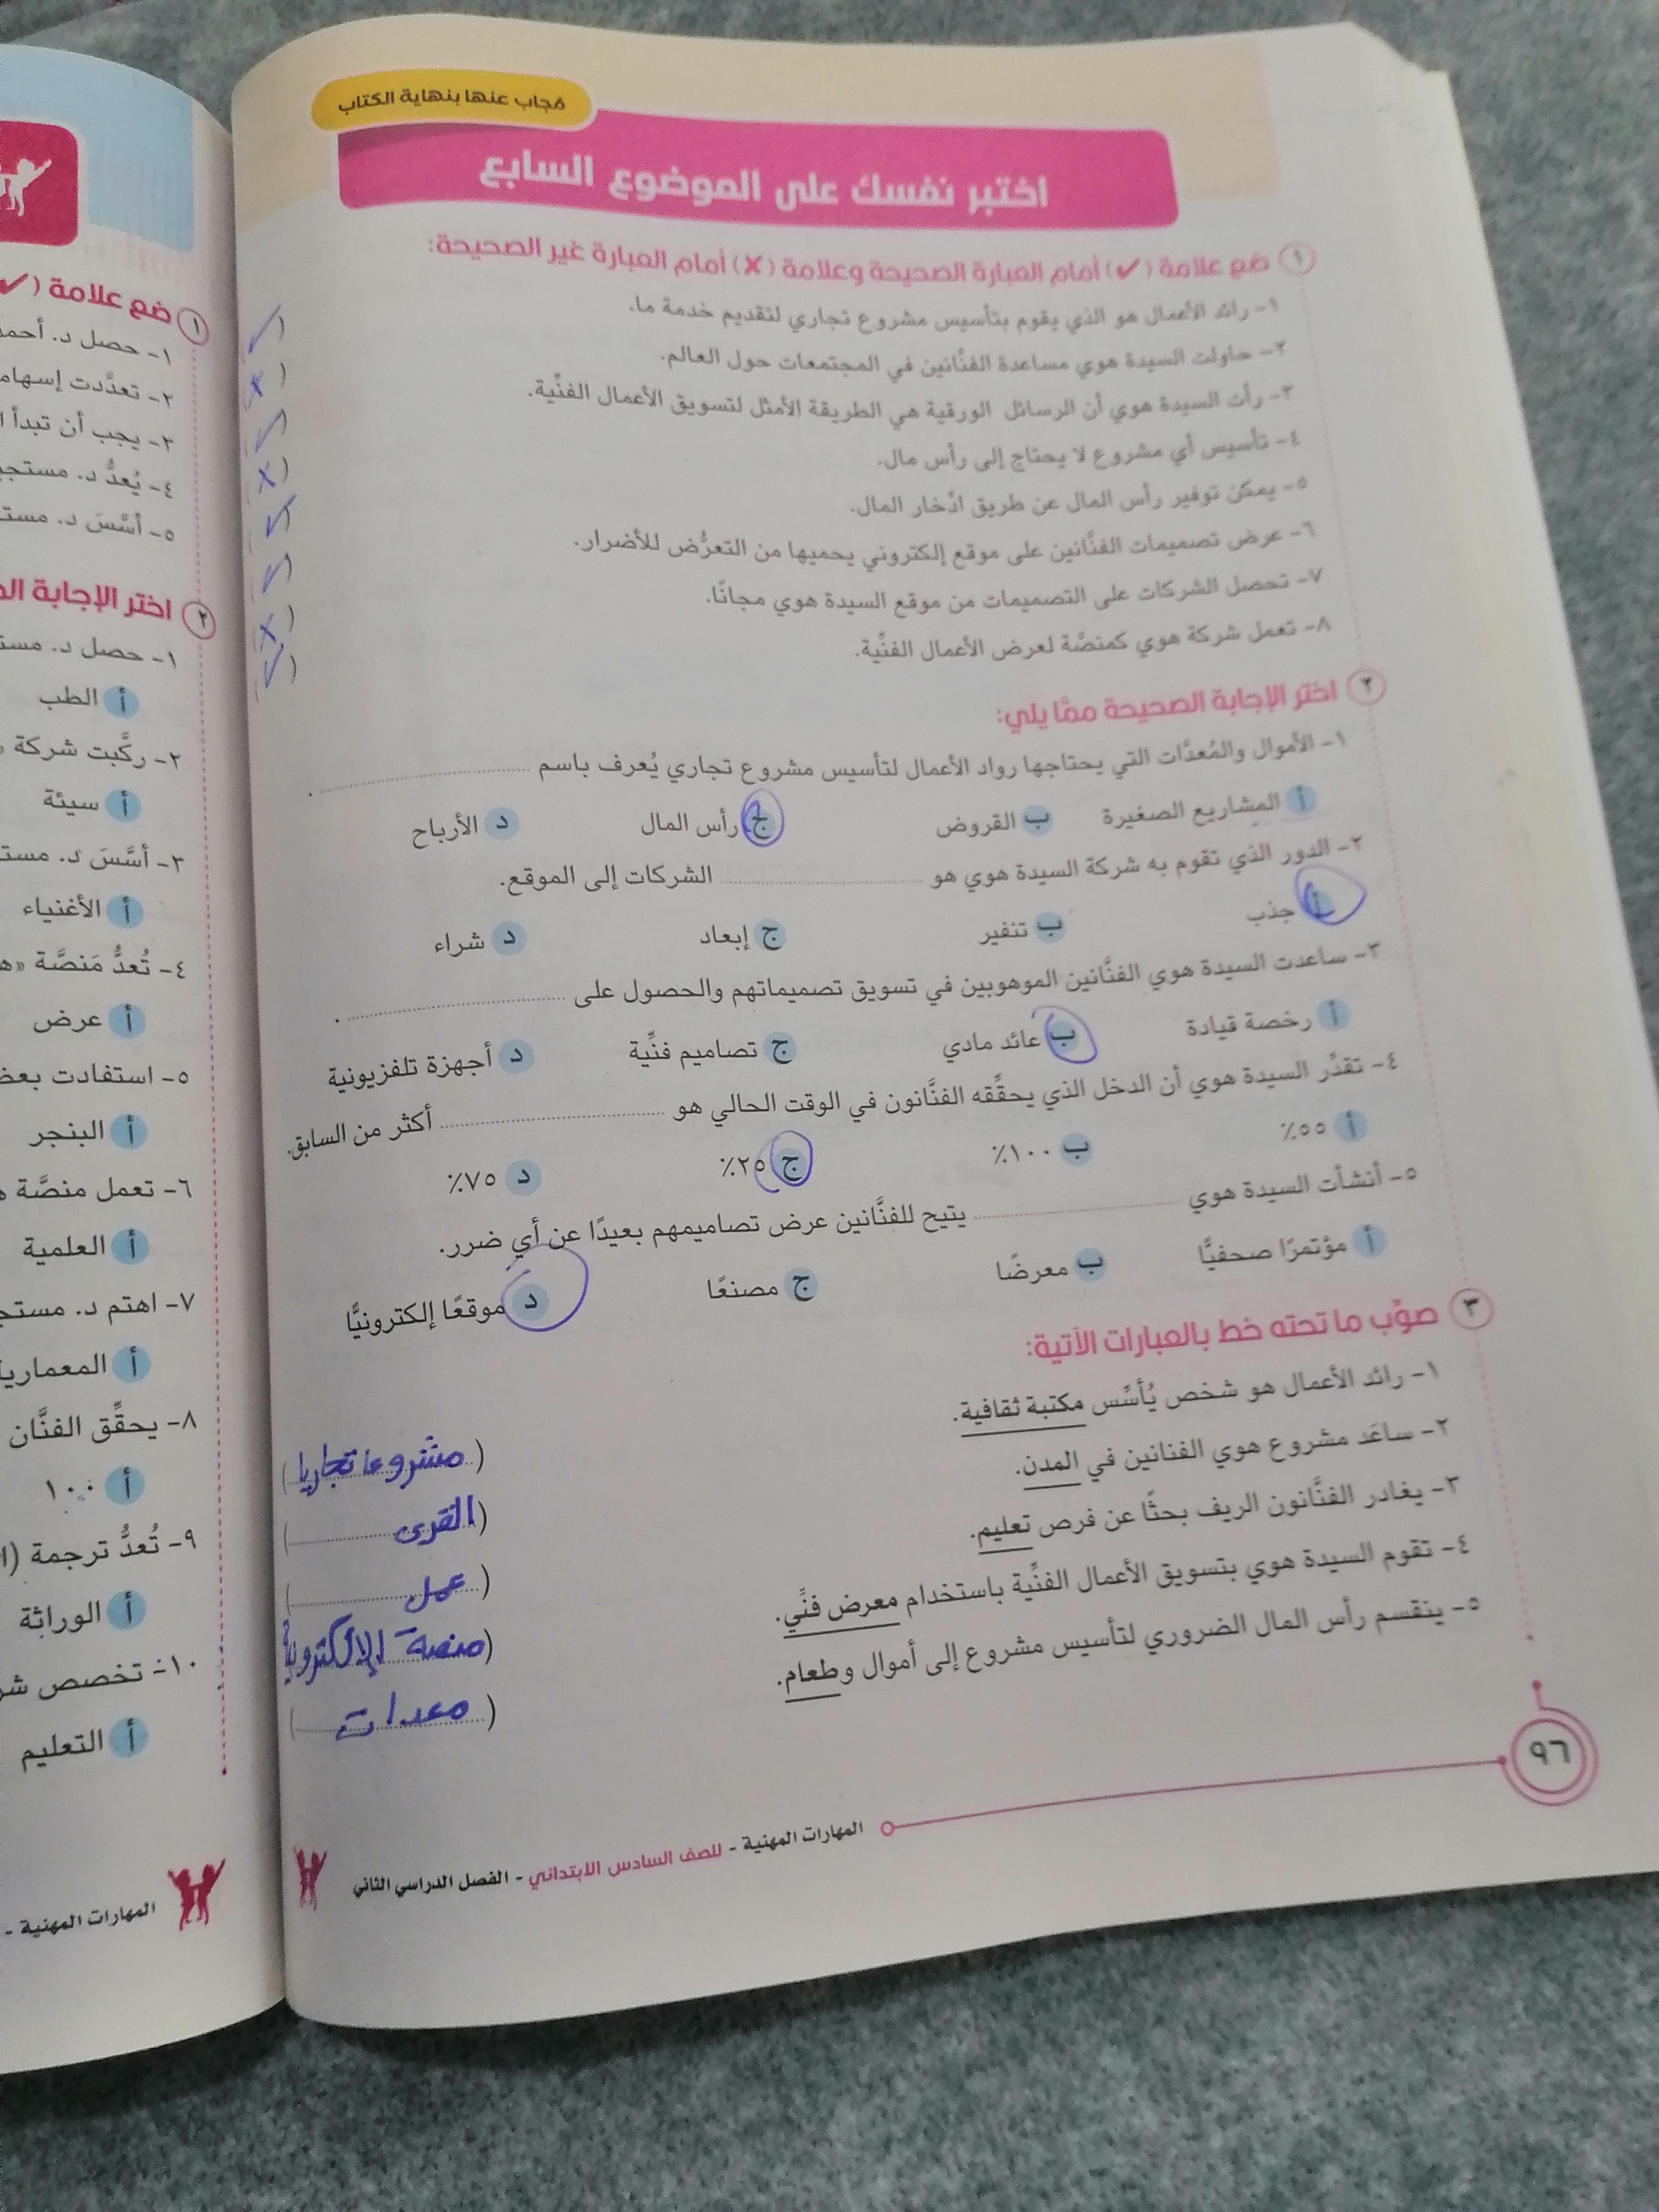 مُجاب عنها بنهاية الكتاب
اختبر نفسك على الموضوع السابع
١ ضع علامة (✓) أمام العبارة الصحيحة وعلامة (✗) أمام العبارة غير الصحيحة:
١- رائد الأعمال هو الذي يقوم بتأسيس مشروع تجاري لتقديم خدمة ما. (✓)
٢- حاولت السيدة هوي مساعدة الفنَّانين في المجتمعات حول العالم. (✗)
٣- رأت السيدة هوي أن الرسائل الورقية هي الطريقة الأمثل لتسويق الأعمال الفنِّية. (✓)
٤- تأسيس أي مشروع لا يحتاج إلى رأس مال. (✗)
٥- يمكن توفير رأس المال عن طريق ادِّخار المال. (✓)
٦- عرض تصميمات الفنَّانين على موقع إلكتروني يحميها من التعرُّض للأضرار. (✓)
٧- تحصل الشركات على التصميمات من موقع السيدة هوي مجانًا. (✗)
٨- تعمل شركة هوي كمنصَّة لعرض الأعمال الفنِّية. (✓)
٢ اختر الإجابة الصحيحة ممَّا يلي:
١- الأموال والمُعدَّات التي يحتاجها رواد الأعمال لتأسيس مشروع تجاري يُعرف باسم ........................ .
أ المشاريع الصغيرة ب القروض ج رأس المال د الأرباح
٢- الدور الذي تقوم به شركة السيدة هوي هو ........................ الشركات إلى الموقع.
أ جذب ب تنفير ج إبعاد د شراء
٣- ساعدت السيدة هوي الفنَّانين الموهوبين في تسويق تصميماتهم والحصول على ........................ .
أ رخصة قيادة ب عائد مادي ج تصاميم فنِّية د أجهزة تلفزيونية
٤- تقدِّر السيدة هوي أن الدخل الذي يحقِّقه الفنَّانون في الوقت الحالي هو ........................ أكثر من السابق.
أ ٥٥٪ ب ١٠٠٪ ج ٢٥٪ د ٧٥٪
٥- أنشأت السيدة هوي ........................ يتيح للفنَّانين عرض تصاميمهم بعيدًا عن أي ضرر.
أ مؤتمرًا صحفيًّا ب معرضًا ج مصنعًا د موقعًا إلكترونيًّا
٣ صوِّب ما تحته خط بالعبارات الآتية:
١- رائد الأعمال هو شخص يُأسِّس مكتبة ثقافية. (مشروعا تجاريا)
٢- ساعَد مشروع هوي الفنانين في المدن. (القرى)
٣- يغادر الفنَّانون الريف بحثًا عن فرص تعليم. (عمل)
٤- تقوم السيدة هوي بتسويق الأعمال الفنِّية باستخدام معرض فنِّي. (منصة
٥- ينقسم رأس المال الضروري لتأسيس مشروع إلى أموال وطعام. (معدات)
٩٦
المهارات المهنية - للصف السادس الابتدائي - الفصل الدراسي الثاني
١ ضع علامة (✓
١- حصل د. أحمد
٢- تعدَّدت إسهاما
٣- يجب أن تبدأ ا
٤- يُعدُّ د. مستجي
٥- أسَّسَ د. مستـ
٢ اختر الإجابة الـ
١- حصل د. مستـ
أ الطب
٢- ركَّبت شركة
أ سيئة
٣- أسَّسَ د. مستـ
أ الأغنياء
٤- تُعدُّ مَنصَّة «هـ
أ عرض
٥- استفادت بعض
أ البنجر
٦- تعمل منصَّة
أ العلمية
٧- اهتم د. مستجـ
أ المعماريا
٨- يحقِّق الفنَّان
أ ١٠٠
٩- تُعدُّ ترجمة (ا
أ الوراثة
١٠- تخصص شر
أ التعليم
المهارات المهنية -